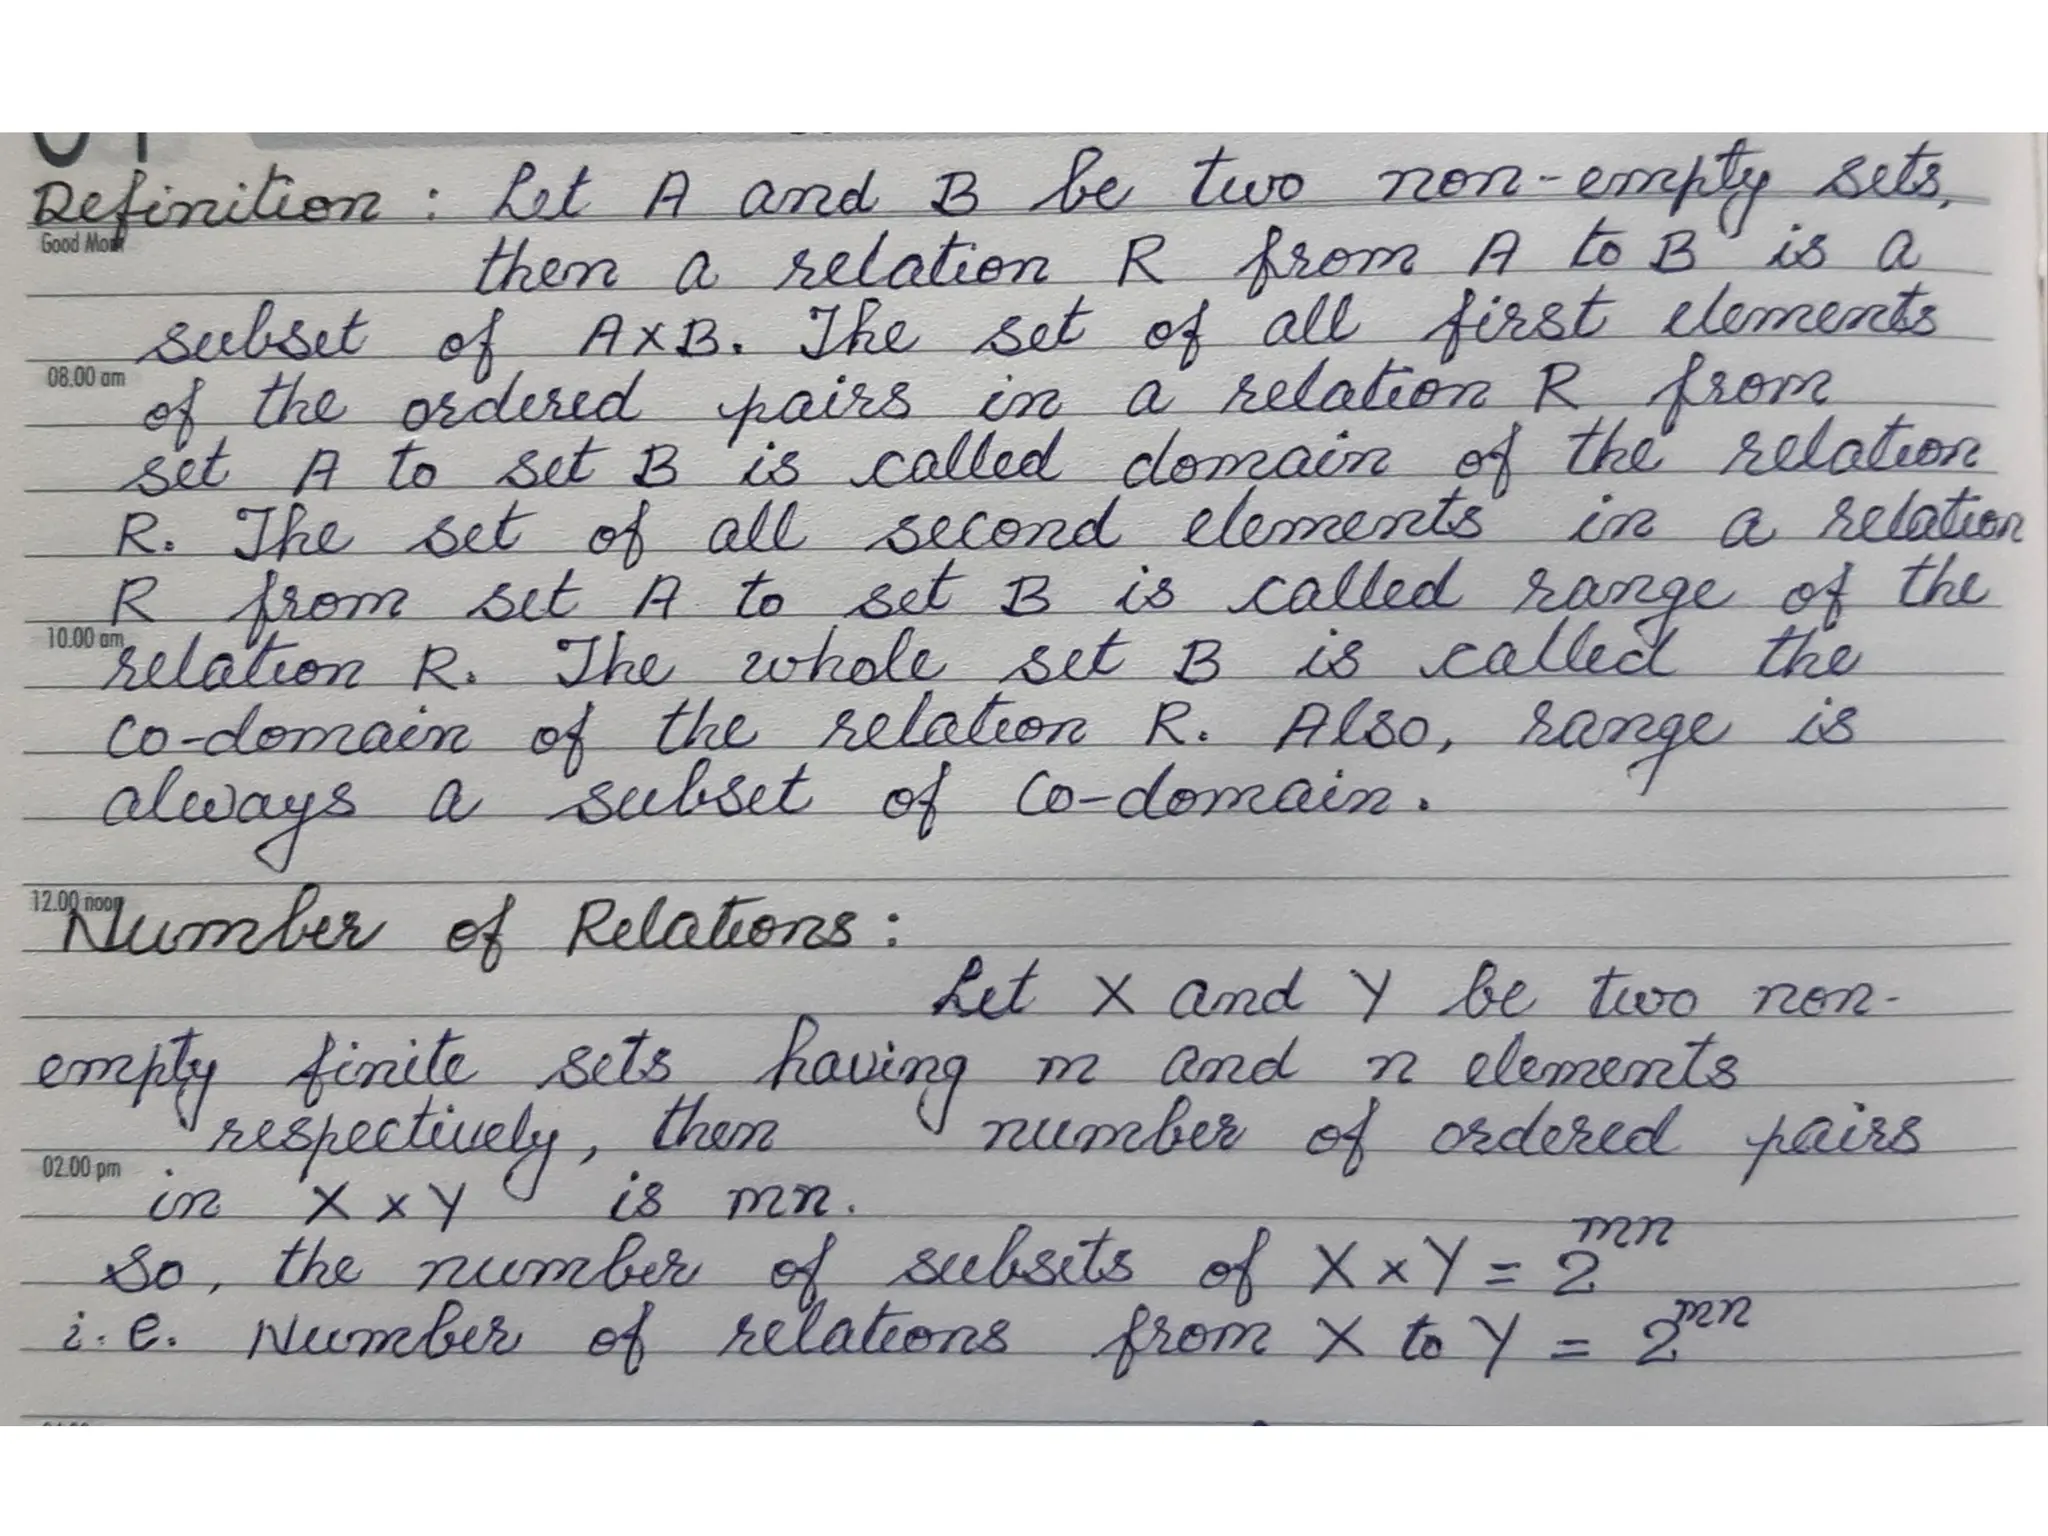 Definition : Let A and B be two non-empty sets,
Good Morn
then a relation R from A to B is a
subset of A×B. The set of all first elements
08.00 am
of the ordered pairs in a relation R from
set A to set B is called domain of the relation
R. The set of all second elements in a relation
R from set A to set B is called range of the
10.00 am
relation R. The whole set B is called the
co-domain of the relation R. Also, range is
always a subset of co-domain.
12.00 noon
Number of Relations :
Let X and Y be two non-
empty finite sets having m and n elements
respectively, then number of ordered pairs
02.00 pm
in X × Y is mn.
So, the number of subsets of X × Y = 2^mn
i.e. Number of relations from X to Y = 2^mn